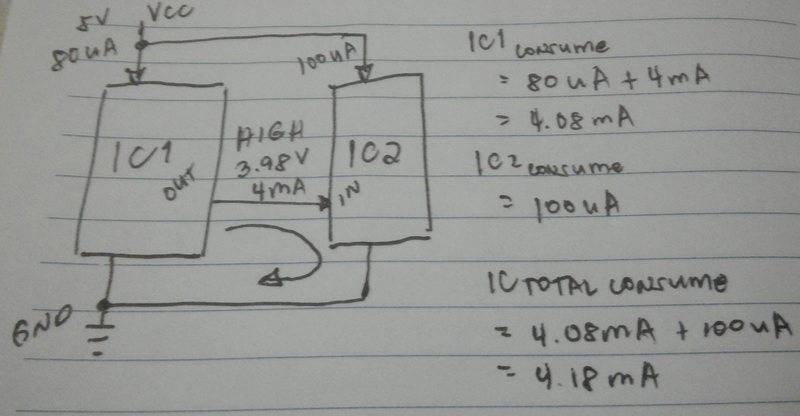 5V VCC
80uA
100uA
IC1
OUT
HIGH
3.98V
4mA
IC2
IN
GND
IC1 CONSUME
= 80uA + 4mA
= 4.08mA
IC2 CONSUME
= 100uA
IC TOTAL CONSUME
= 4.08mA + 100uA
= 4.18mA